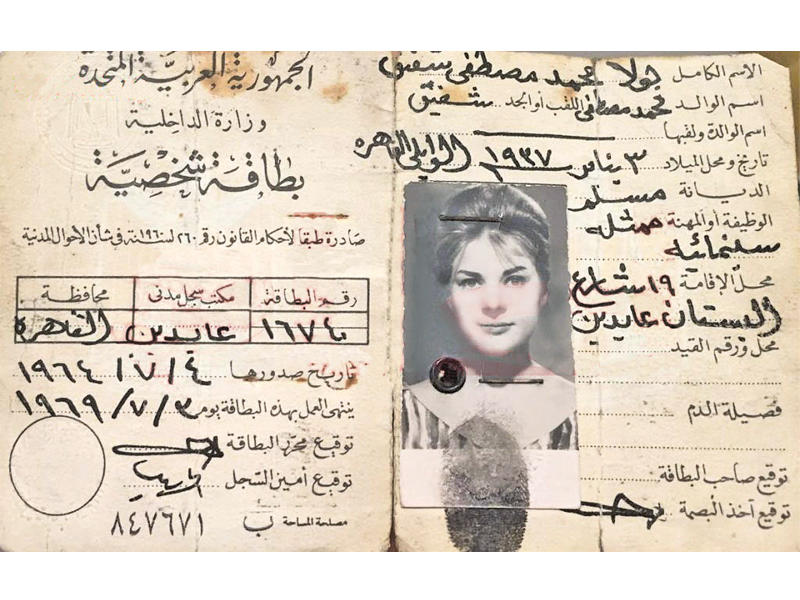 الاسم الكامل بولا محمد مصطفى شفيق
اسم الوالد محمد مصطفى اللقب أو الجد شفيق
اسم الوالدة ولقبها
تاريخ ومحل الميلاد ٣ يناير ١٩٣٧ الوايلى القاهرة
الديانة مسلمه
الوظيفة أو المهنة ممثله
سينمائيه
محل الإقامة ١٩ شارع
البستان عابدين
محل ورقم القيد
فصيلة الدم
توقيع صاحب البطاقة
توقيع آخذ البصمة
الجمهورية العربية المتحدة
وزارة الداخلية
بطاقة شخصية
صادرة طبقا لأحكام القانون رقم ٢٦٠ لسنة ١٩٦٠ في شأن الأحوال المدنية
رقم البطاقة مكتب سجل مدنى محافظة
١٦٧٤٠ عابدين القاهرة
تاريخ صدورها ١٩٦٤/٧/٤
ينتهى العمل بهذه البطاقة يوم ١٩٦٩/٧/٣
توقيع محرر البطاقة
توقيع أمين السجل
مصلحة المساحة ب ٨٤٧٦٧١